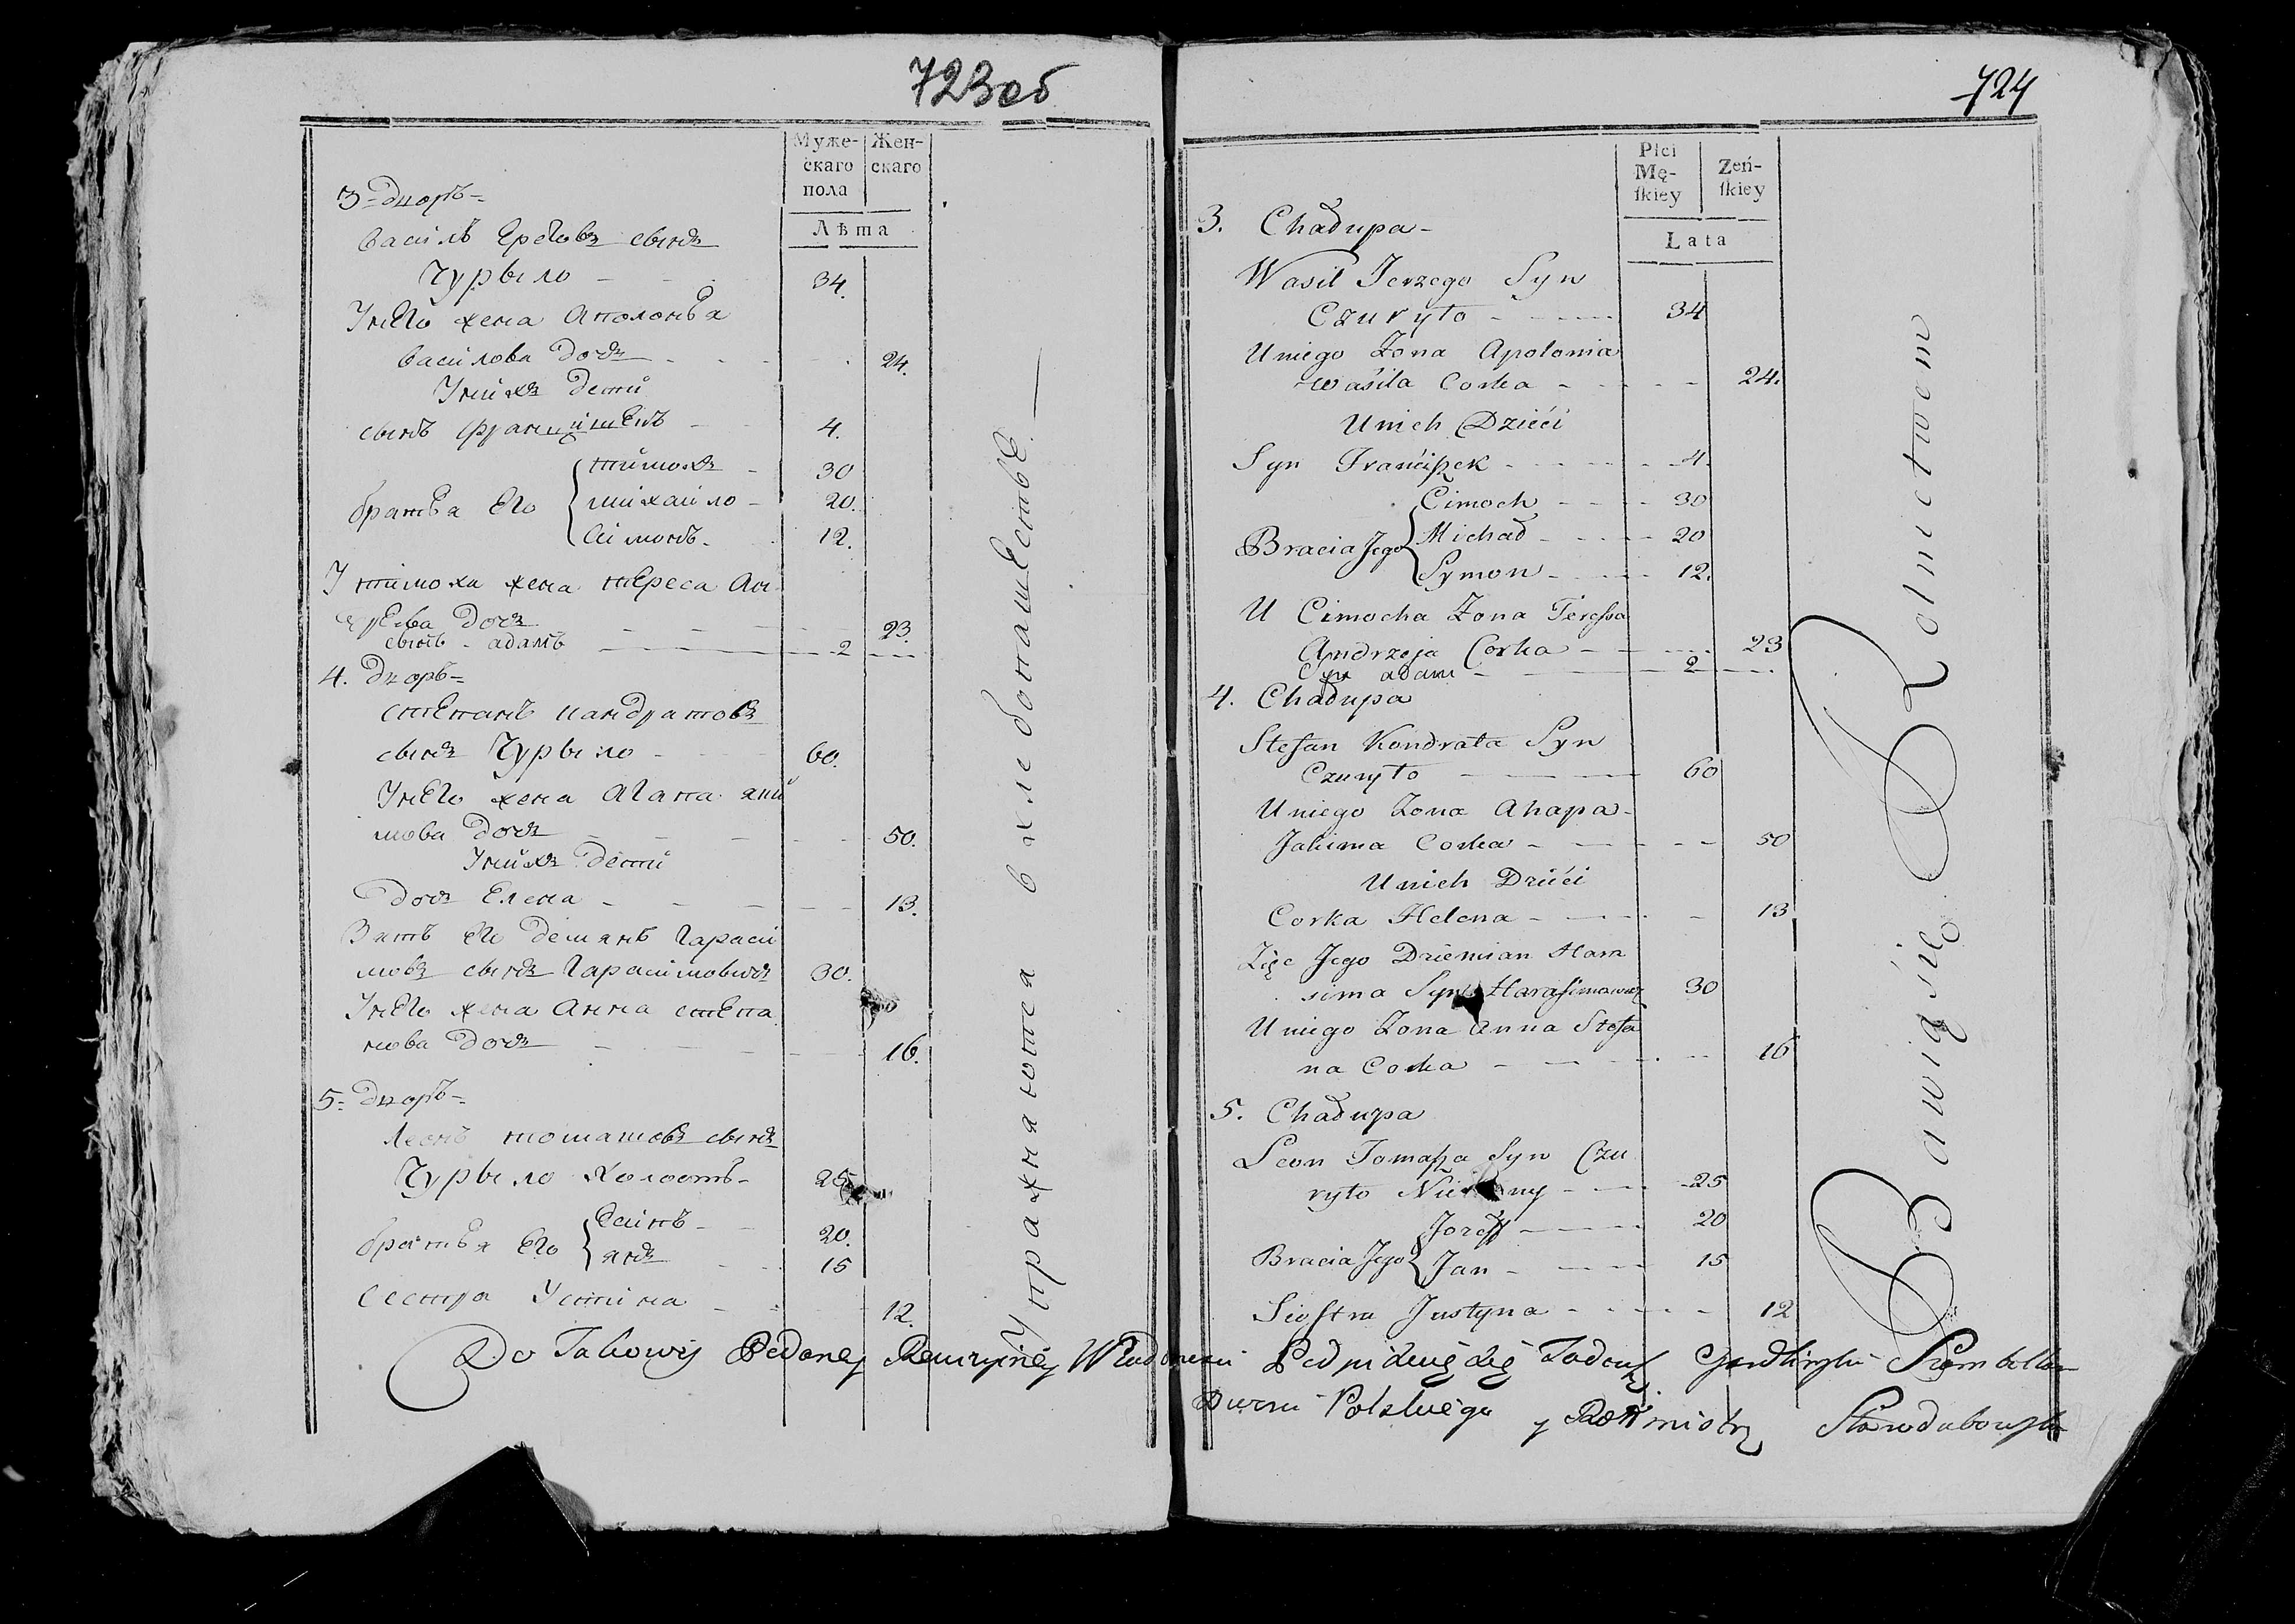 723об
Муже- Жен-
скаго скаго
пола
Лѣта
3= Дворъ=
Василь Еревовъ сынъ
Чурыло - 34.
У него жена Аполонья
Василова дочь - 24.
У нихъ дети
сынъ Францишекъ - 4.
тимохъ - 30
братья его михайло - 20.
Симонъ - 12.
У тимоха жена тереса Ан
дреева дочь - 23.
сынъ адамъ - 2
4. Дворъ=
степанъ кандратовъ
сынъ Чурыло - 60.
У него жена Агапа яки
мова дочь - 50.
У нихъ дети
дочь Елена - 13.
Зять его демянъ Гараси
мовъ сынъ Гарасимовичъ 30.
У него жена Анна степа
нова дочь - 16.
5= Дворъ=
Леонъ томашовъ сынъ
Чурыло холостъ - 25
братья его Осипъ - 20.
янъ - 15
Сестра Устина - 12.
Упражняются в хлебопашестве
724
Płci
Mę- Zeń-
ſkiey ſkiey
Lata
3. Chałupa -
Wasil Jerzego Syn
Czuryło - 34
U niego Żona Apolonia
Wasila Corka - 24.
U nich Dzieći
Syn Franciszek - 4.
Cimoch - 30
Bracia Jego Michał - 20
Symon - 12.
U Cimocha Żona Teressa
Andrzeja Corka - 23
Syn adam - 2
4. Chałupa
Stefan Kondrata Syn
Czuryło - 60
U niego Żona Ahapa -
Jakima Corka - 50
U nich Dzieći
Corka Helena - 13
Zięc Jego Dziemian Hara
sima Syn Harasimowicz 30
U niego Żona Anna Stefa
na Corka - 16
5. Chałupa
Leon Tomasza Syn Czu
ryło - 25
Jozeff - 20
Bracia Jego Jan - 15
Siostra Justyna - 12
Bawią się Rolnictwem
Do Takowey Podaney Podpisuię się Tadeusz Szambellan
Dworu Polskiego y Rotmistrz Starodubowski